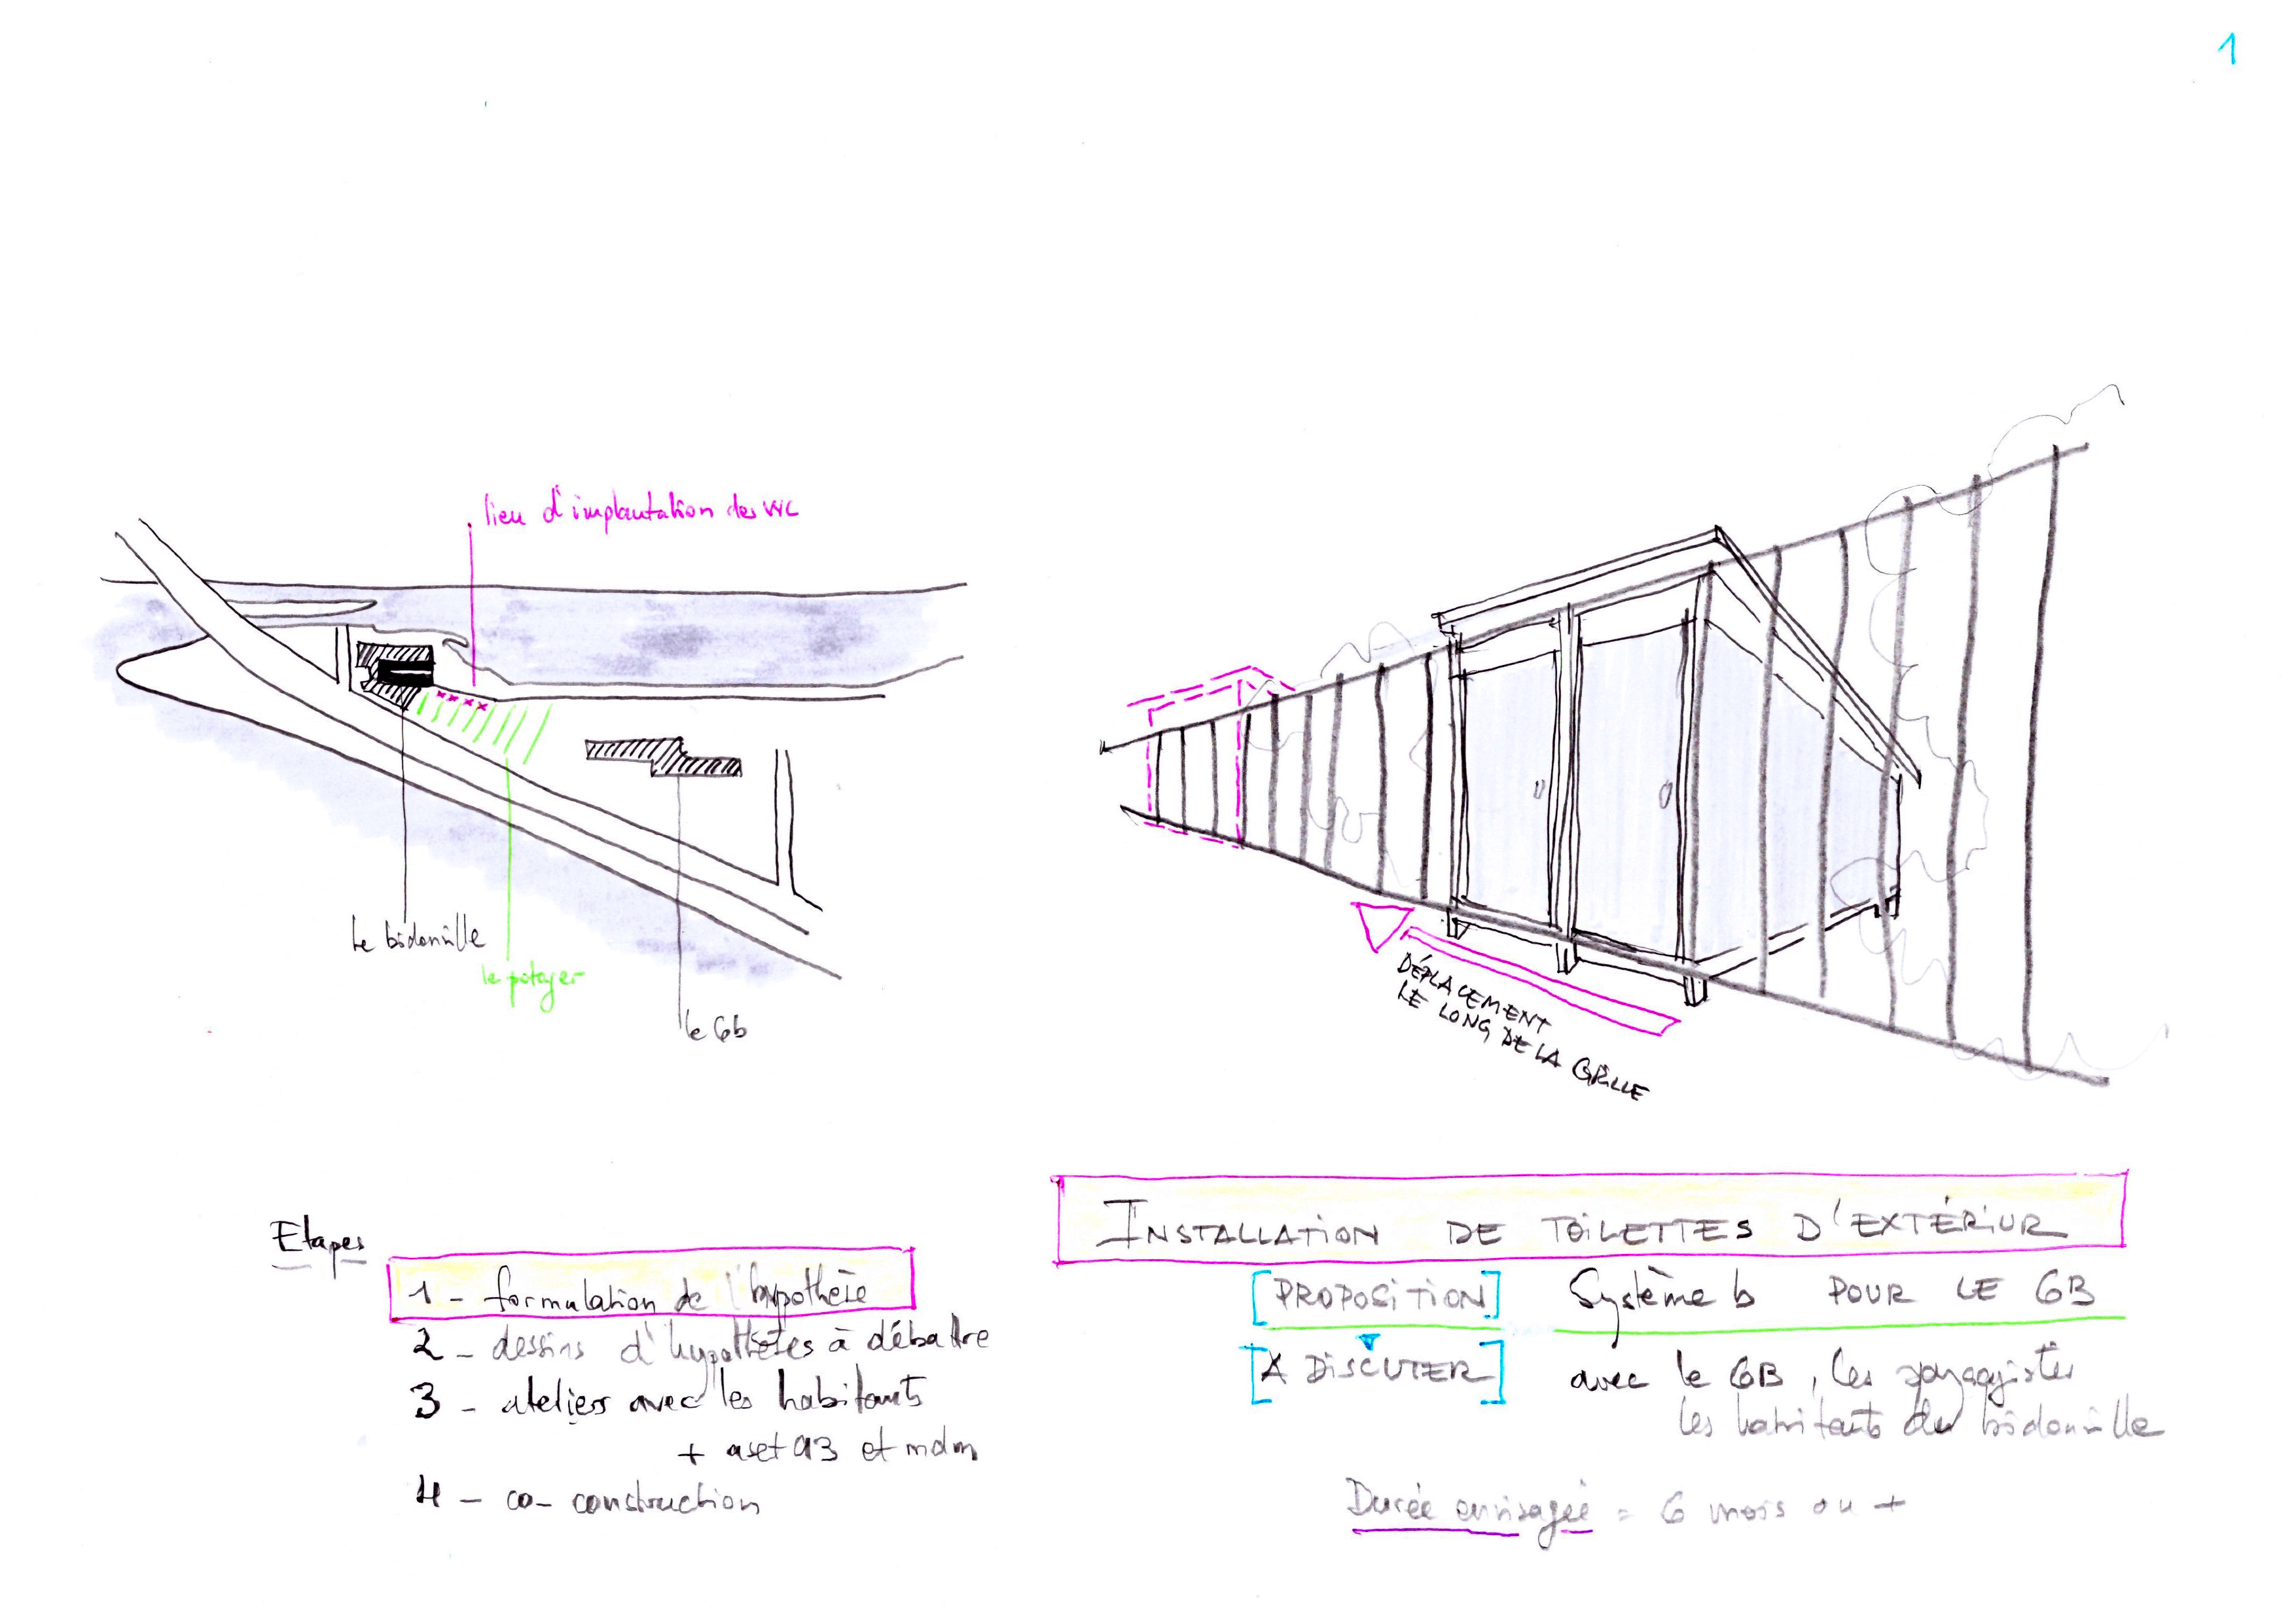 1
lieu d'implantation des WC
le bidonville
le potager
le 6b
DÉPLACEMENT
LE LONG DE LA GRILLE
Etapes
1 - formulation de l'hypothèse
2 - dessins d'hypothèses à débattre
3 - ateliers avec les habitants
+ aset 93 et mdm
4 - co-construction
INSTALLATION DE TOILETTES D'EXTÉRIUR
[PROPOSITION] Système b POUR LE 6B
[A DISCUTER] avec le 6B, les paysagistes
les habitants du bidonville
Durée envisagée = 6 mois ou +